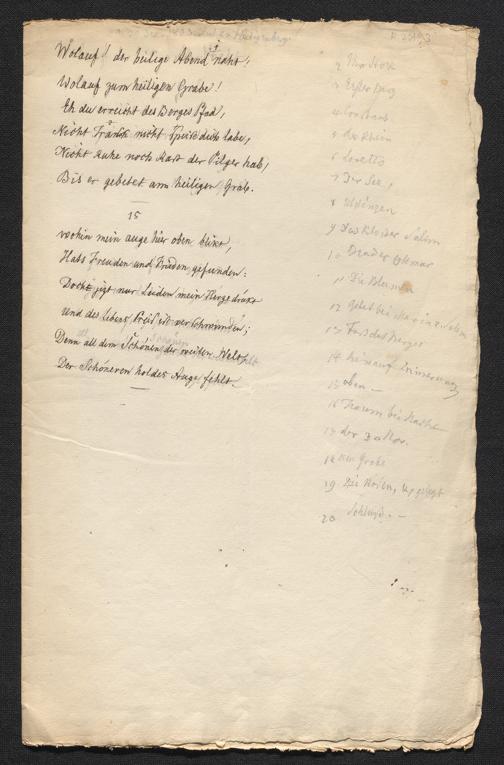 Wolauf! der heilige Abend naht,
Wolauf zum heiligen Grabe!
Eh du erreicht des Berges Pfad,
Nicht Trank nicht Speis dich labe,
Nicht Ruhe noch Rast der Pilger hab,
Bis er gebetet am heiligen Grab.
15
wohin mein auge hier oben blikt,
Hats Freuden und Frieden gefunden:
Doch jezt nur Leiden mein Herze drückt
Und des lebens Preis ist verschwunden;
Denn all dem Schönen der weiten Welt
Der Schöneren holdes Auge fehlt.
2
3 Erster
4
5 der Rhein
6 Loretto
7 Der See,
8
9 Das Kloster Salem
10 Bruder Ottmar
11 Die Blumen
12 Gebet bei
13 Fuss des Berges
14 hinauf Erinnerung
15 oben –
16 Traum bei Nacht
17 der
18 am Grabe
19 Die
20 Schluss. –